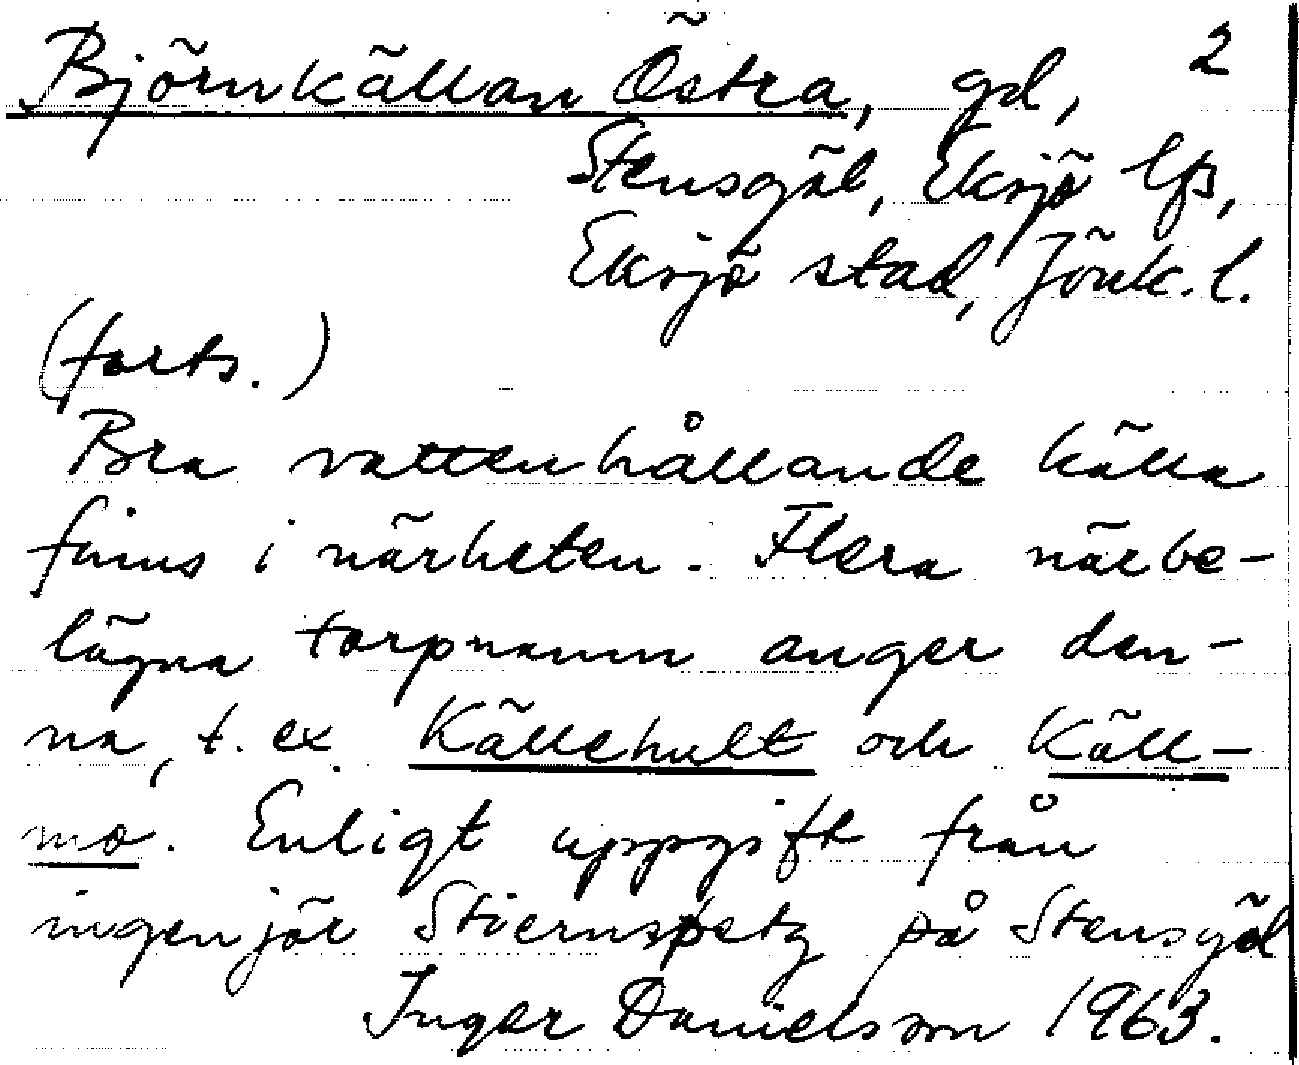 Björnkällan Östra, gd, 2
Stensgöl, Eksjö lfs,
Eksjö stad, Jönk. l.
(forts.)
Bra vattenhållande källa
finns i närheten. Flera närbe-
lägna torpnamn anger den-
na, t. ex. Källehult och Käll-
mo. Enligt uppgift från
ingenjör Stiernspetz på Stensgöl
Inger Danielsson 1963.